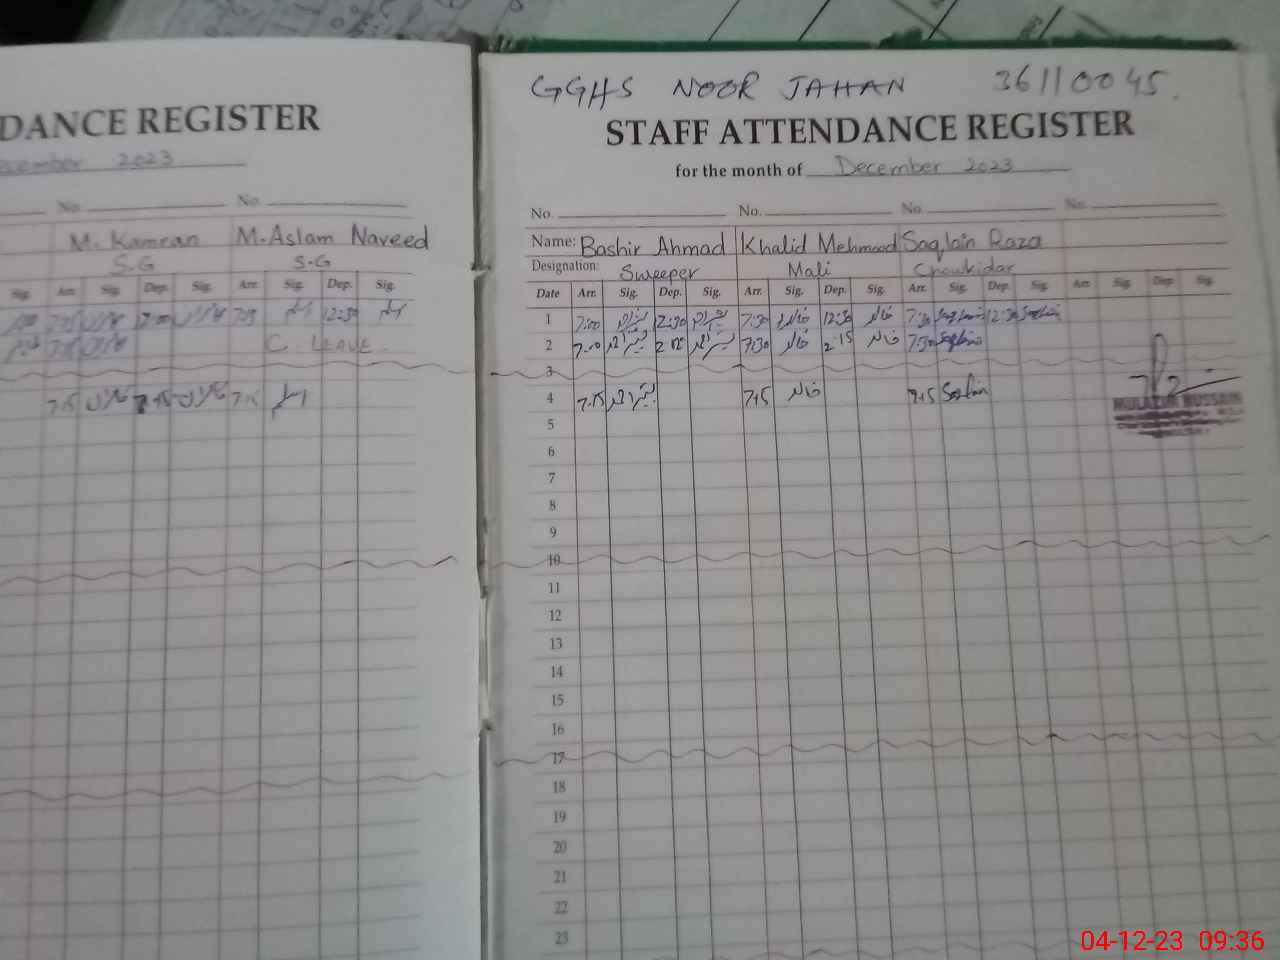 DANCE REGISTER
ecember 2023
No. No.
M. Kamran M.Aslam Naveed
S.G S.G
Sig. Arr. Sig. Dep. Sig. Arr. Sig. Dep. Sig.
7:15 12:30 اسلم
C. LEAVE
7:15 7:15 اسلم
GGHS NOOR JAHAN 36110045.
STAFF ATTENDANCE REGISTER
for the month of December 2023
No. No. No. No.
Name: Bashir Ahmad Khalid Mehmood Saqlain Raza
Designation: Sweeper Mali Chowkidar
Date Arr. Sig. Dep. Sig. Arr. Sig. Dep. Sig. Arr. Sig. Dep. Sig. Arr. Sig. Dep. Sig.
1 7:00 بشیر احمد 12:30 بشیر احمد 7:30 خالد 12:30 خالد 7:30 Saqlain 12:30 Saqlain
2 7:00 بشیر احمد بشیر احمد 7:30 خالد 2:15 خالد 7:30 Saqlain
3
4 7:15 بشیر احمد 7:15 خالد 7:15 Saqlain
MULAZIM HUSSAIN
5
6
7
8
9
10
11
12
13
14
15
16
17
18
19
20
21
22
23
04-12-23 09:36